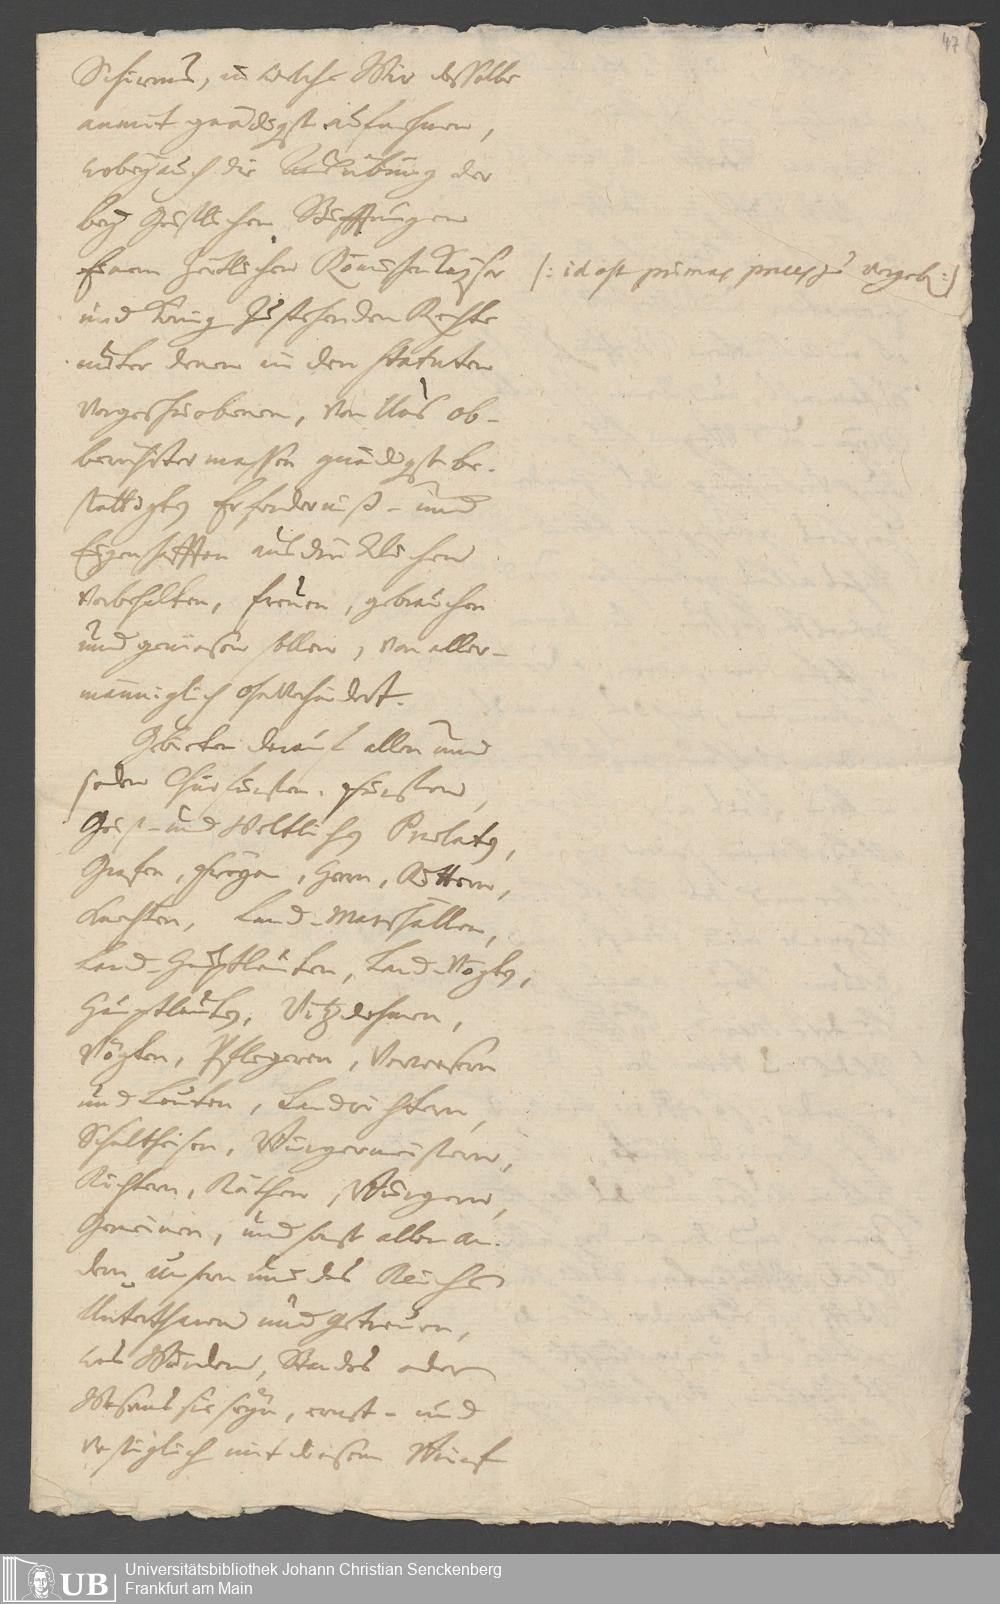 47
Schirms, in welche Wir dasselbe
anmit gnädigst aufnehmen,
wobey auch die Ausübung der
bey Geistlichen Stifftungen
einem zeitlichen Römischen Kayser (: id est primas preces zu vergeb. :)
und König zustehenden Rechte
unter denen in den Statuten
vorgeschriebenen, von Uns ob-
berührter massen gnädigst be-
stättigten Erforderniß- und
Eigenschafften ausdrücklichen
vorbehalten, freuen, gebrauchen
und geniesen sollen, von aller-
männiglich ohnverhindert.
Gebieten darauf allen und
jeden Churfürsten, Fürsten,
Geist- und Weltlichen Prelaten,
Grafen, Freyen, Herrn, Rittern,
Knechten, Land-Marschallen,
Land-Hauptleuten, Land-Vögten,
Hauptleuten, Vitzdohmen,
Vögten, Pflegeren, Verwesern
und Leuten, Landrichtern,
Schultheisen, Burgermeistern,
Richtern, Räthen, Burgern,
Gemeinen, und sonst allen an-
dern unsern und des Reichs
Unterthanen und Getreuen,
was Würden, Standes oder
Wesens sie seyn, ernst- und
vestiglich mit diesem Brief
UB
Universitätsbibliothek Johann Christian Senckenberg
Frankfurt am Main